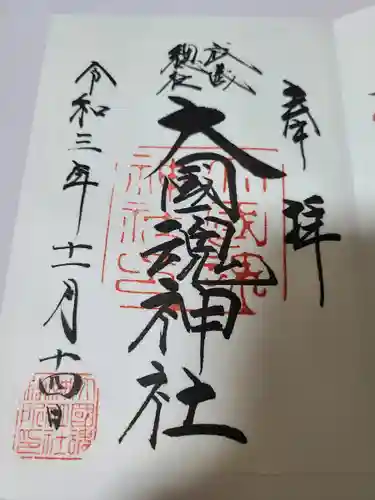 奉拝
武蔵
總社
大國魂神社
令和三年十一月十四日